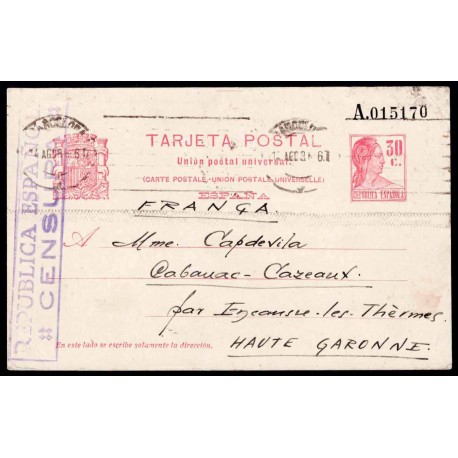 A.015170
BARCELONA
TARJETA POSTAL
Unión postal universal
(CARTE POSTALE-UNION POSTALE UNIVERSELLE)
ESPAÑA
30 C.
REPUBLICA ESPAÑOLA
REPUBLICA ESPAÑOLA
CENSURA
FRANÇA
A Mme. Capdevila
Cabanac-Cazeaux.
par Encausse-les-Thermes
HAUTE GARONNE.
En este lado se escribe solamente la dirección.